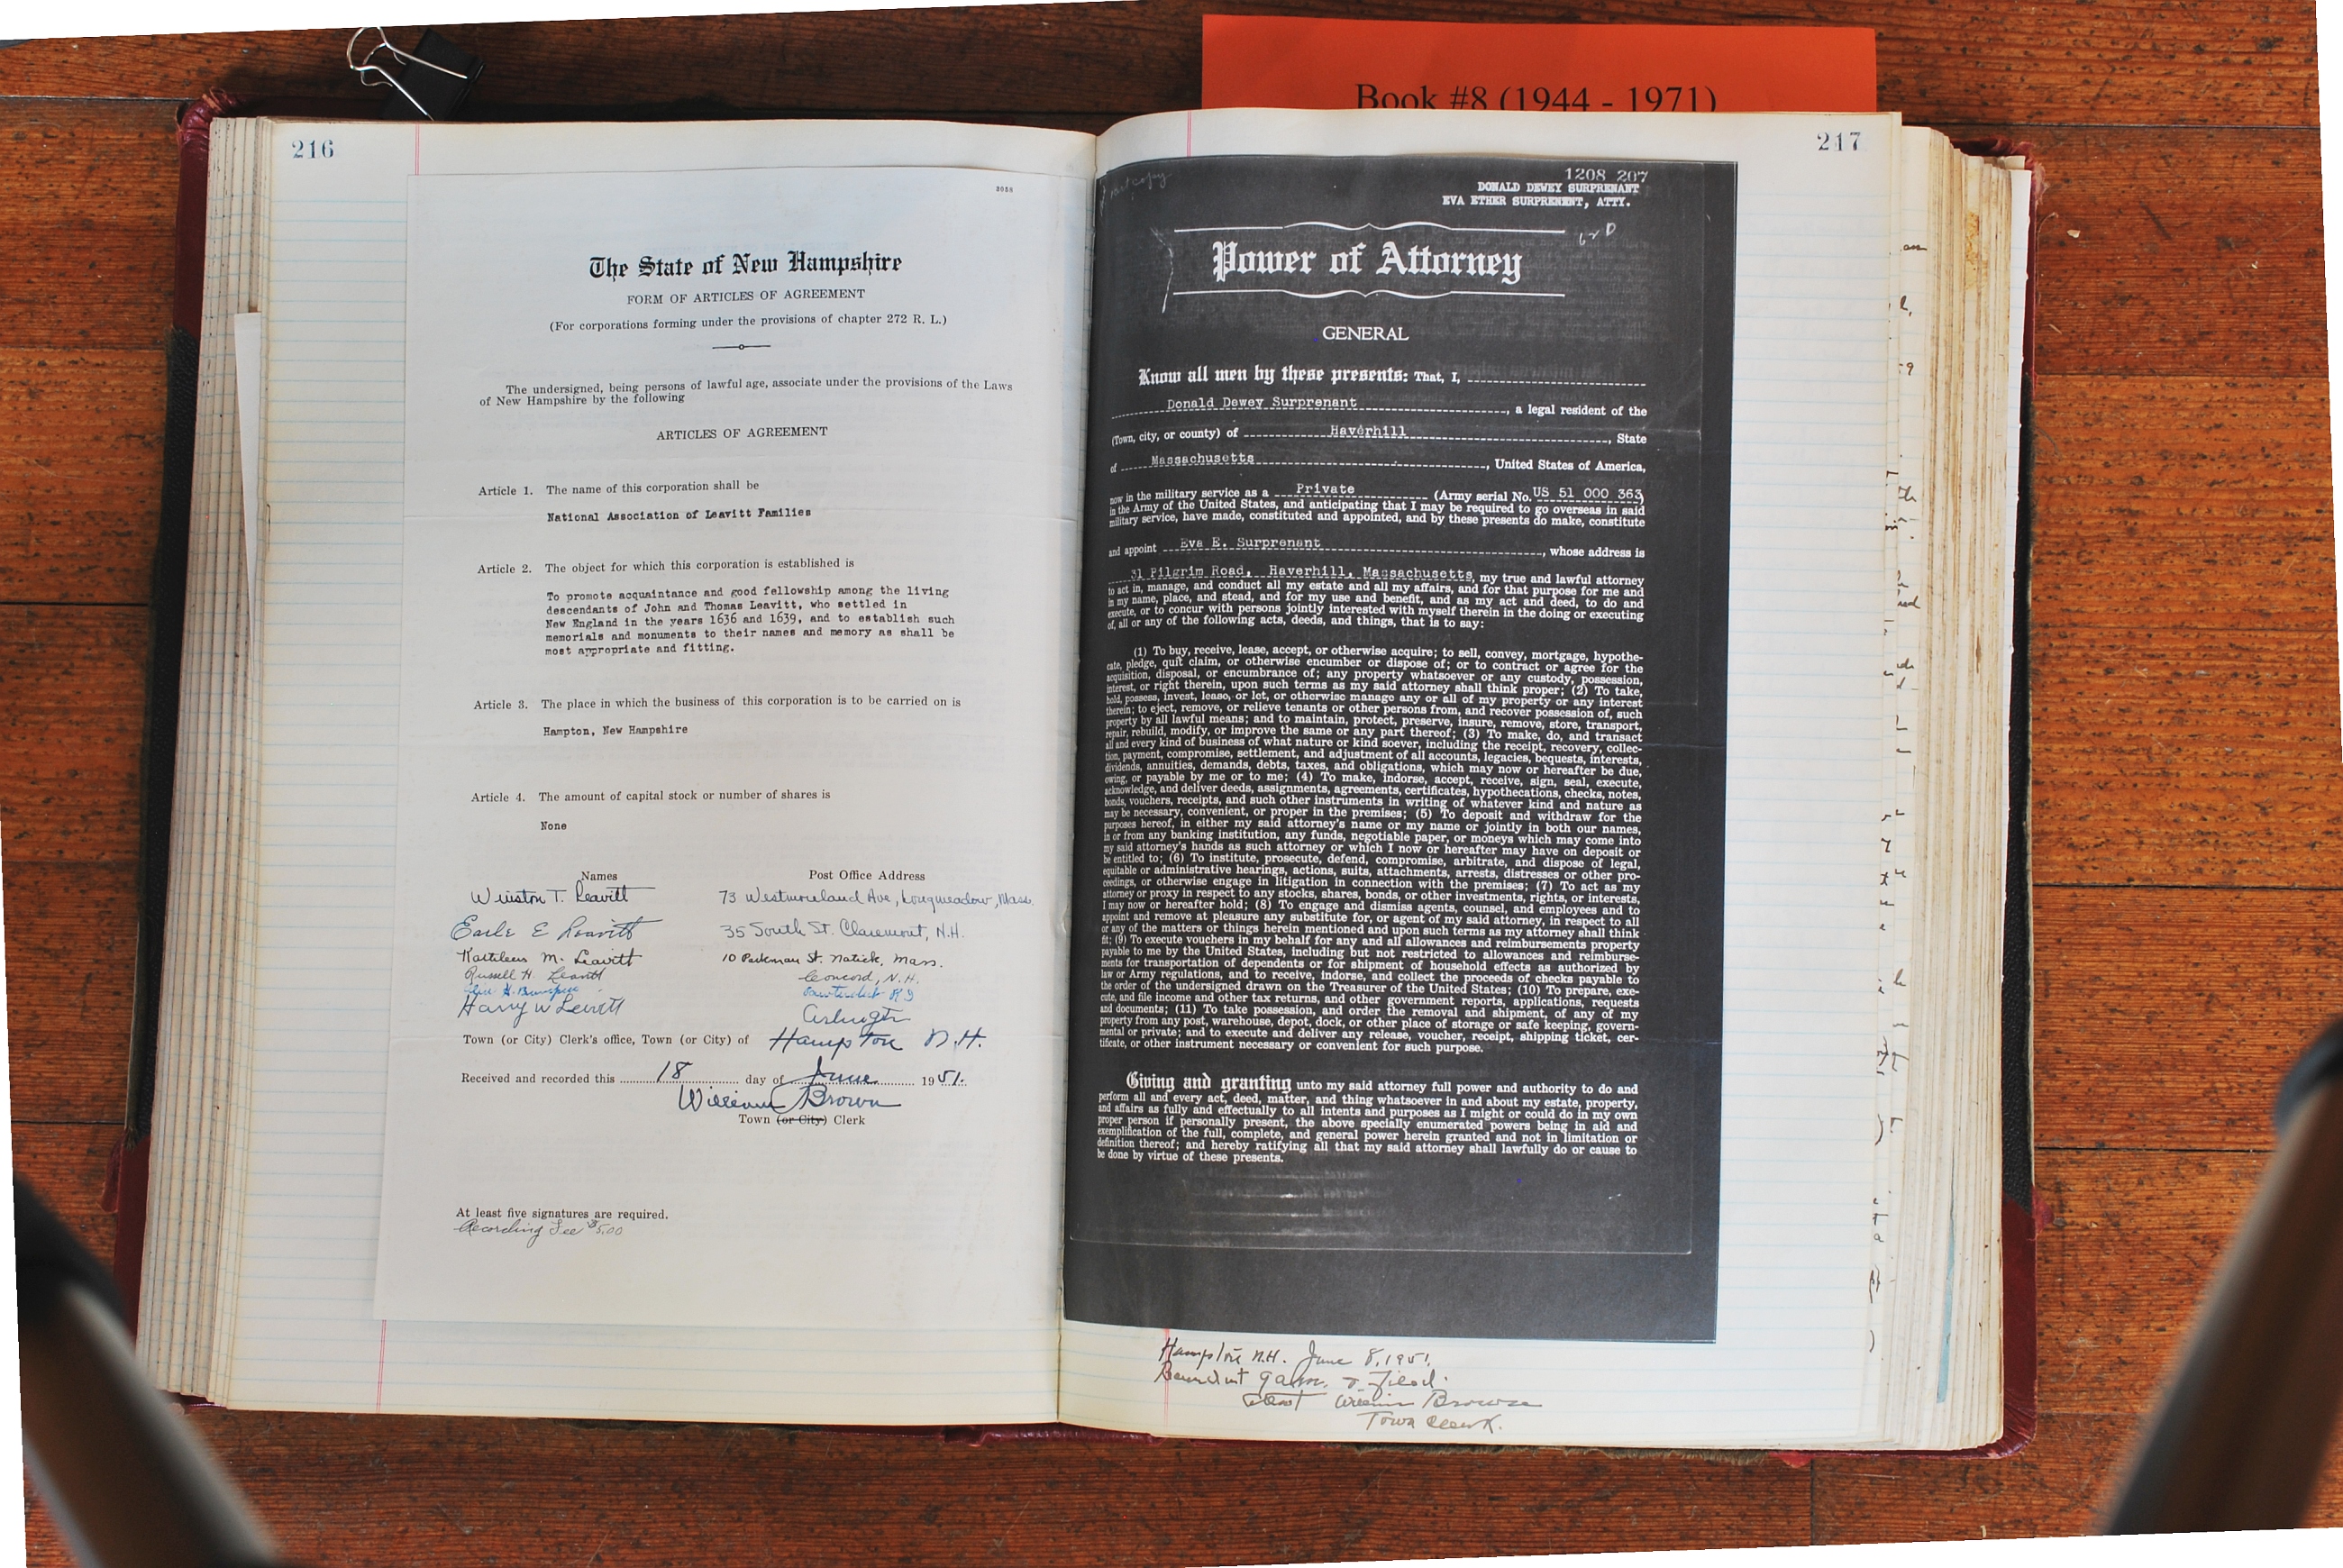 Book #8 (1944 - 1971)
216
2058
The State of New Hampshire
FORM OF ARTICLES OF AGREEMENT
(For corporations forming under the provisions of chapter 272 R. L.)
The undersigned, being persons of lawful age, associate under the provisions of the Laws
of New Hampshire by the following
ARTICLES OF AGREEMENT
Article 1. The name of this corporation shall be
National Association of Leavitt Families
Article 2. The object for which this corporation is established is
To promote acquaintance and good fellowship among the living
descendants of John and Thomas Leavitt, who settled in
New England in the years 1636 and 1639, and to establish such
memorials and monuments to their names and memory as shall be
most appropriate and fitting.
Article 3. The place in which the business of this corporation is to be carried on is
Hampton, New Hampshire
Article 4. The amount of capital stock or number of shares is
None
Names Post Office Address
Winston T. Leavitt 73 Westmoreland Ave, Longmeadow, Mass.
Earle E Leavitt 35 South St. Claremont, N.H.
Kathleen M. Leavitt 10 Parkman St. Natick, Mass.
Russell H. Leavitt Concord, N.H.
Harry W Leavitt Arlington
Town (or City) Clerk's office, Town (or City) of Hampton N.H.
Received and recorded this 18 day of June 1951.
William Brown
Town (or City) Clerk
At least five signatures are required.
Recording Fee $5.00
217
1208 207
DONALD DEWEY SURPRENANT
EVA ETHER SURPRENENT, ATTY.
Power of Attorney
GENERAL
Know all men by these presents: That, I,
Donald Dewey Surprenant, a legal resident of the
(Town, city, or county) of Haverhill, State
of Massachusetts, United States of America,
now in the military service as a Private (Army serial No. US 51 000 363)
in the Army of the United States, and anticipating that I may be required to go overseas in said
military service, have made, constituted and appointed, and by these presents do make, constitute
and appoint Eva E. Surprenant, whose address is
31 Pilgrim Road, Haverhill, Massachusetts, my true and lawful attorney
to act in, manage, and conduct all my estate and all my affairs, and for that purpose for me and
in my name, place, and stead, and for my use and benefit, and as my act and deed, to do and
execute, or to concur with persons jointly interested with myself therein in the doing or executing
of, all or any of the following acts, deeds, and things, that is to say:
(1) To buy, receive, lease, accept, or otherwise acquire; to sell, convey, mortgage, hypothe-
cate, pledge, quit claim, or otherwise encumber or dispose of; or to contract or agree for the
acquisition, disposal, or encumbrance of; any property whatsoever or any custody, possession,
interest, or right therein, upon such terms as my said attorney shall think proper; (2) To take,
hold, possess, invest, lease, or let, or otherwise manage any or all of my property or any interest
therein; to eject, remove, or relieve tenants or other persons from, and recover possession of, such
property by all lawful means; and to maintain, protect, preserve, insure, remove, store, transport,
repair, rebuild, modify, or improve the same or any part thereof; (3) To make, do, and transact
all and every kind of business of what nature or kind soever, including the receipt, recovery, collec-
tion, payment, compromise, settlement, and adjustment of all accounts, legacies, bequests, interests,
dividends, annuities, demands, debts, taxes, and obligations, which may now or hereafter be due,
owing, or payable by me or to me; (4) To make, indorse, accept, receive, sign, seal, execute,
acknowledge, and deliver deeds, assignments, agreements, certificates, hypothecations, checks, notes,
bonds, vouchers, receipts, and such other instruments in writing of whatever kind and nature as
may be necessary, convenient, or proper in the premises; (5) To deposit and withdraw for the
purposes hereof, in either my said attorney's name or my name or jointly in both our names,
in or from any banking institution, any funds, negotiable paper, or moneys which may come into
my said attorney's hands as such attorney or which I now or hereafter may have on deposit or
be entitled to; (6) To institute, prosecute, defend, compromise, arbitrate, and dispose of legal,
equitable or administrative hearings, actions, suits, attachments, arrests, distresses or other pro-
ceedings, or otherwise engage in litigation in connection with the premises; (7) To act as my
attorney or proxy in respect to any stocks, shares, bonds, or other investments, rights, or interests,
I may now or hereafter hold; (8) To engage and dismiss agents, counsel, and employees and to
appoint and remove at pleasure any substitute for, or agent of my said attorney, in respect to all
or any of the matters or things herein mentioned and upon such terms as my attorney shall think
fit; (9) To execute vouchers in my behalf for any and all allowances and reimbursements property
payable to me by the United States, including but not restricted to allowances and reimburse-
ments for transportation of dependents or for shipment of household effects as authorized by
law or Army regulations, and to receive, indorse, and collect the proceeds of checks payable to
the order of the undersigned drawn on the Treasurer of the United States; (10) To prepare, exe-
cute, and file income and other tax returns, and other government reports, applications, requests
and documents; (11) To take possession, and order the removal and shipment, of any of my
property from any post, warehouse, depot, dock, or other place of storage or safe keeping, govern-
mental or private; and to execute and deliver any release, voucher, receipt, shipping ticket, cer-
tificate, or other instrument necessary or convenient for such purpose.
Giving and granting unto my said attorney full power and authority to do and
perform all and every act, deed, matter, and thing whatsoever in and about my estate, property,
and affairs as fully and effectually to all intents and purposes as I might or could do in my own
proper person if personally present, the above specially enumerated powers being in aid and
exemplification of the full, complete, and general power herein granted and not in limitation or
definition thereof; and hereby ratifying all that my said attorney shall lawfully do or cause to
be done by virtue of these presents.
Hampton N.H. June 8, 1951.
9 a.m. & filed.
William Brown
Town Clerk.